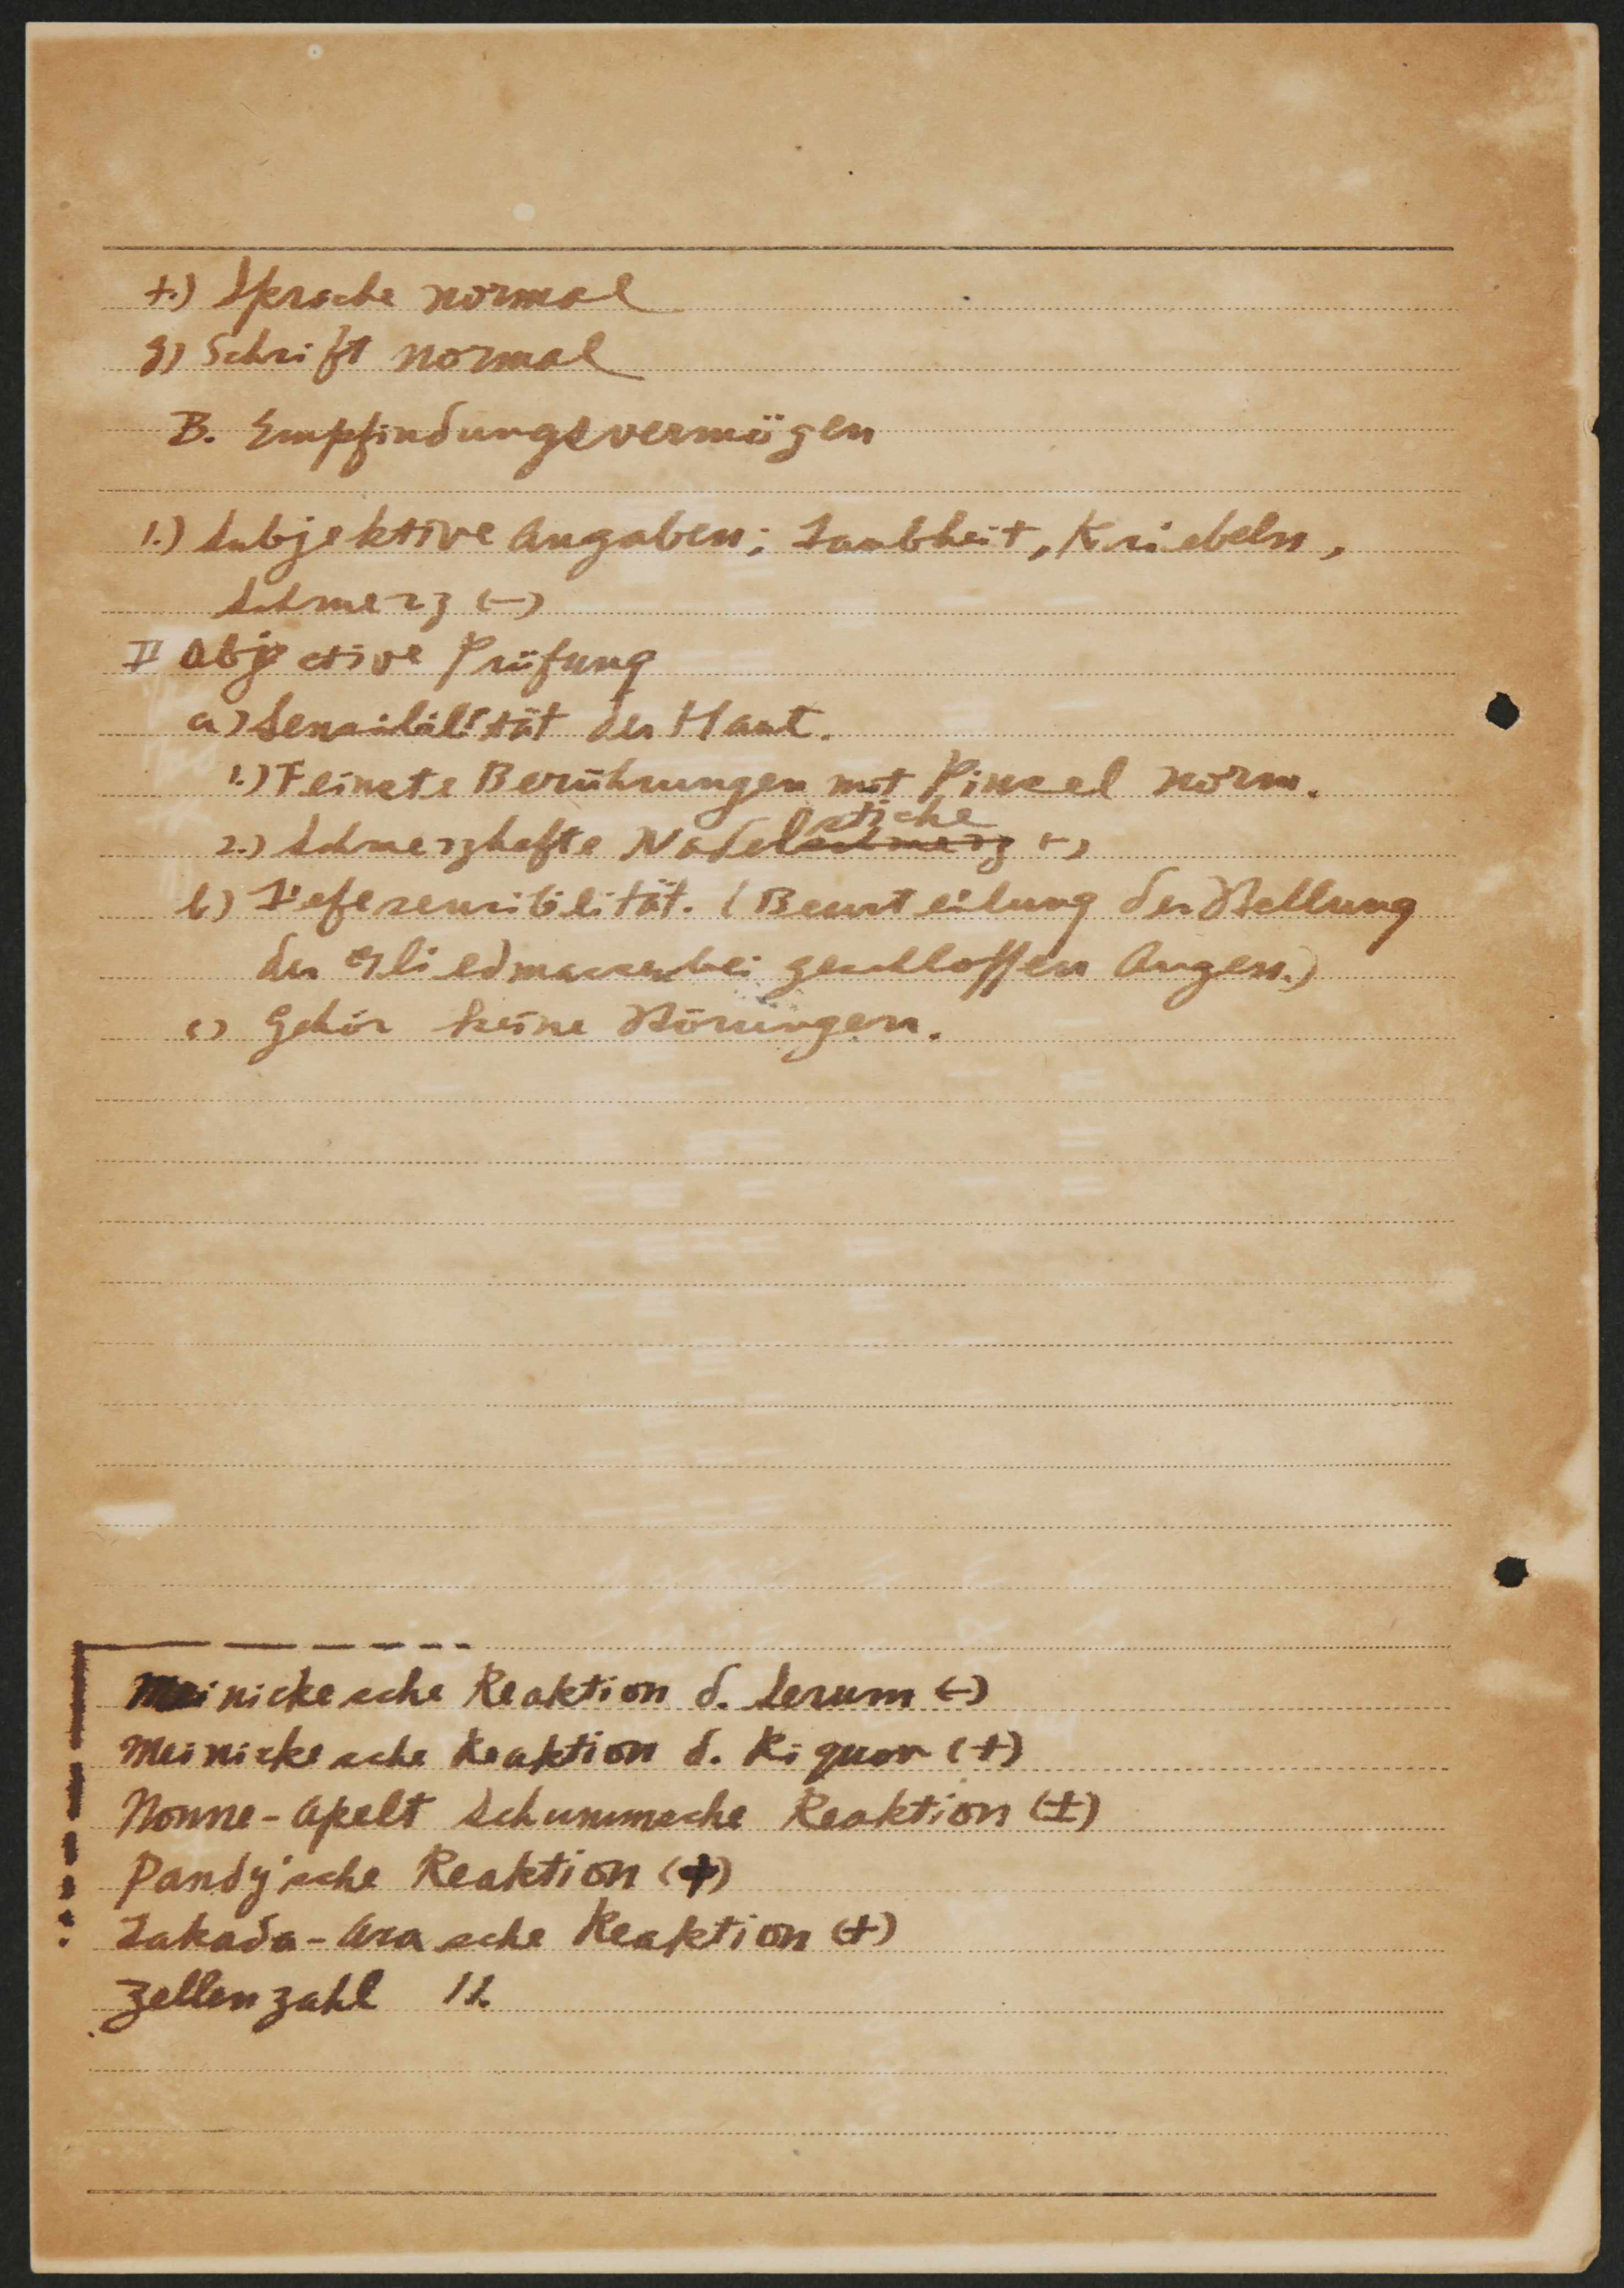 f.) Sprache normal
g) Schrift normal
B. Empfindungsvermögen
1.) Subjektive Angaben; Taubheit, Kriebeln,
Schmerz (-)
II Objective Prüfung
a) Sensibilität der Haut.
1.) Feinste Berührungen mit Pinsel norm.
2.) Schmerzhafte Nadelstiche (-)
b) Tiefesensibilität. (Beurteilung der Stellung
der Gliedmassen bei geschlossen Augen.)
c) Gehör keine Störungen.
Meinickesche Reaktion d. Serum (-)
Meinickesche Reaktion d. Liquor (+)
Nonne-Apelt Schummsche Reaktion (±)
Pandy'sche Reaktion (+)
Takada-Arasche Reaktion (+)
Zellenzahl 11.